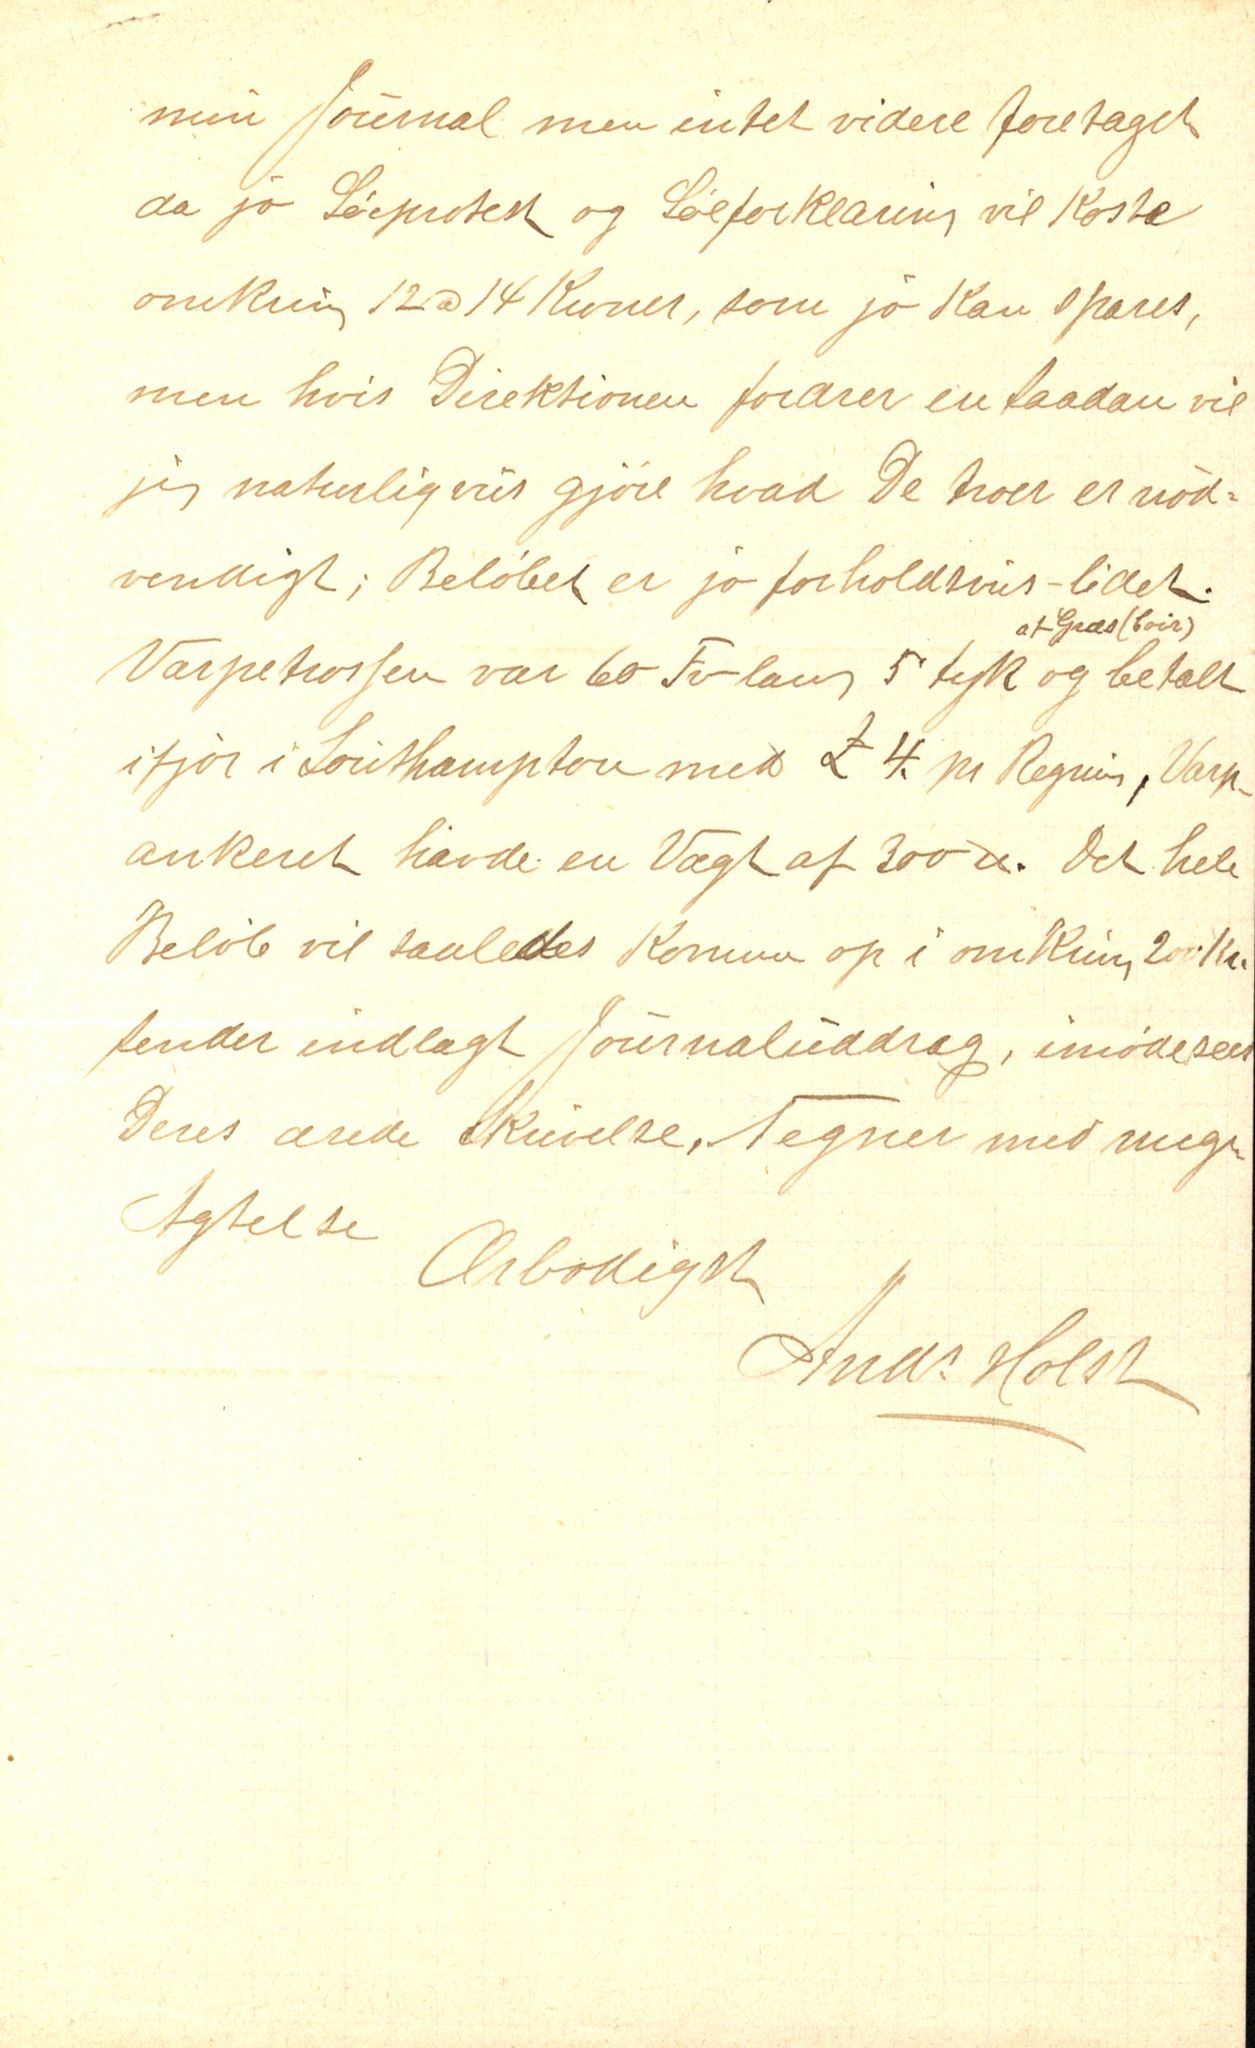 min Journal men intet videre foretaget
da jo Søeprotest og Søeforklaring vil koste
omkring 12 a 14 Kroner, som jo kan spares,
men hvis Direktionen fordrer en saadan vil
jeg naturligviis gjøre hvad De troer er nød=
vendigt; Beløbet er jo forholdsviis lidet.
af Græs (Coir)
Varpetrossen var 60 Fv lang 5" tyk og betalt
ifjor i Southampton med £ 4. pr Regning, Varp-
ankeret havde en Vægt af 300 . Det hele
Beløb vil saaledes komme op i omkring 200 Kr.
sender indlagt Journaluddrag, imødesees
Deres ærede Skrivelse. Tegner med megen
Agtelse
Ærbødigst
Andr. Holst